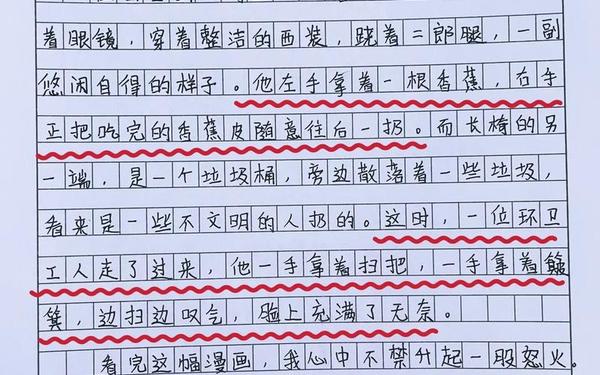 着眼镜，穿着整洁的西装，跷着二郎腿，一副
悠闲自得的样子。他左手拿着一根香蕉，右手
正把吃完的香蕉皮随意往后一扔。而长椅的另
一端，是一个垃圾桶，旁边散落着一些垃圾，
看来是一些不文明的人扔的。这时，一位环卫
工人走了过来，他一手拿着扫把，一手拿着簸
箕，边扫边叹气，脸上充满了无奈。
看完这幅漫画，我心中不禁升起一股怒火。